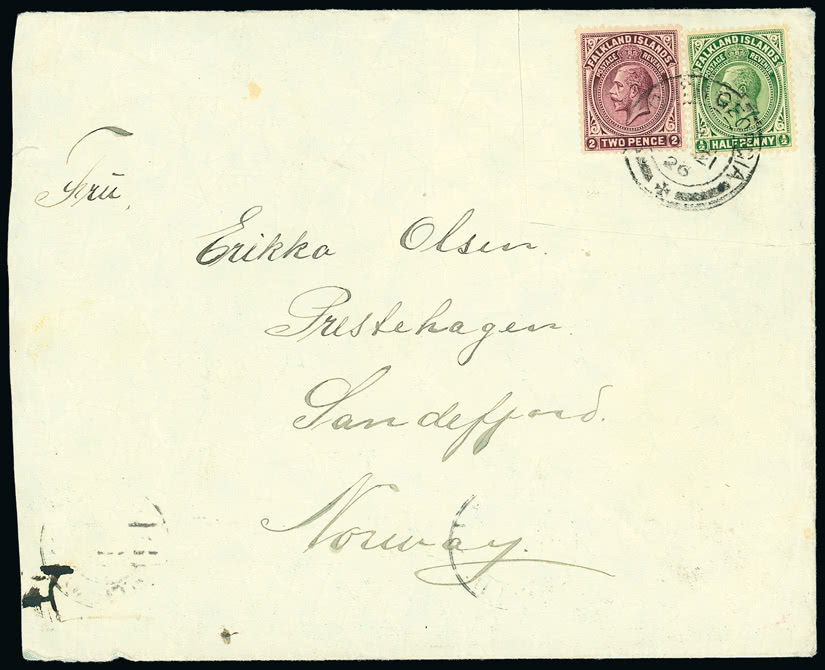 FALKLAND ISLANDS
POSTAGE REVENUE
2 TWO PENCE 2
FALKLAND ISLANDS
POSTAGE
½ HALFPENNY ½
26
Frü
Erikka Olsen.
Prestehagen.
Sandefjord.
Norway.